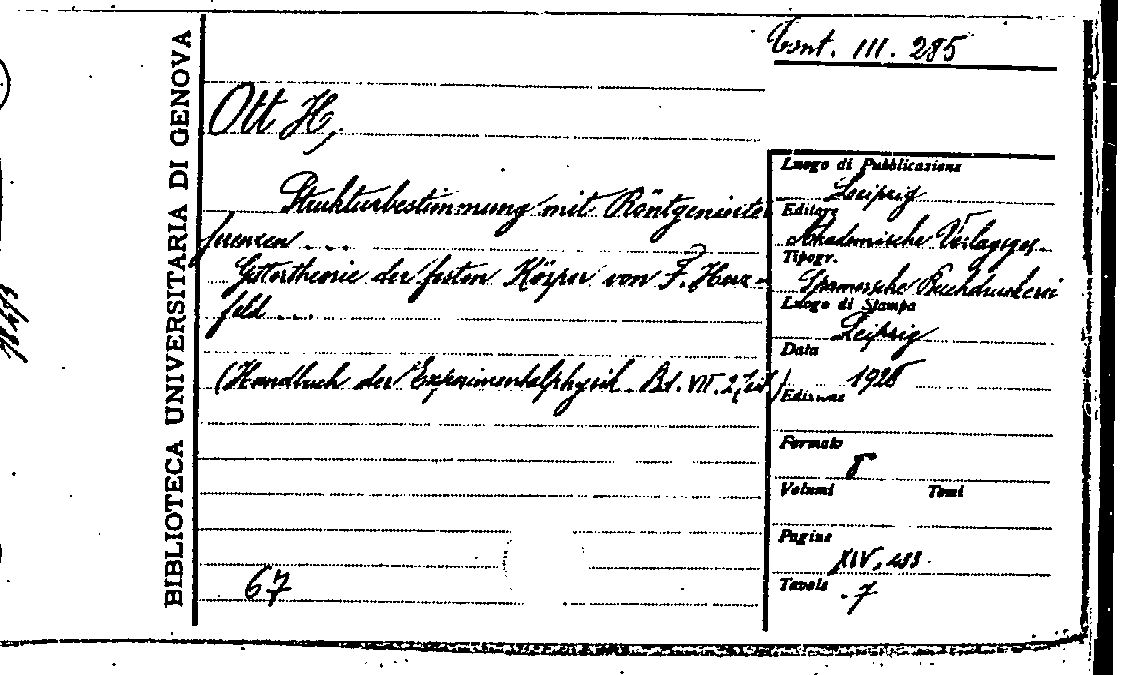 BIBLIOTECA UNIVERSITARIA DI GENOVA
Cont. III. 285
Ott H,
Strukturbestimmung mit Röntgeninter
ferenzen ...
Gittertheorie der festen Körper von F. Herz-
feld ...
(Handbuch der Experimentalphysik Bd. VII. 2,
67
Luogo di Pubblicazione
Leipzig
Editore
Akademische Verlagsges.
Tipogr.
Spamersche Buchdruckerei
Luogo di Stampa
Leipzig
Data
1928
Edizione
Formato
8°
Volumi Tomi
Pagine
XIV,
Tavole
7